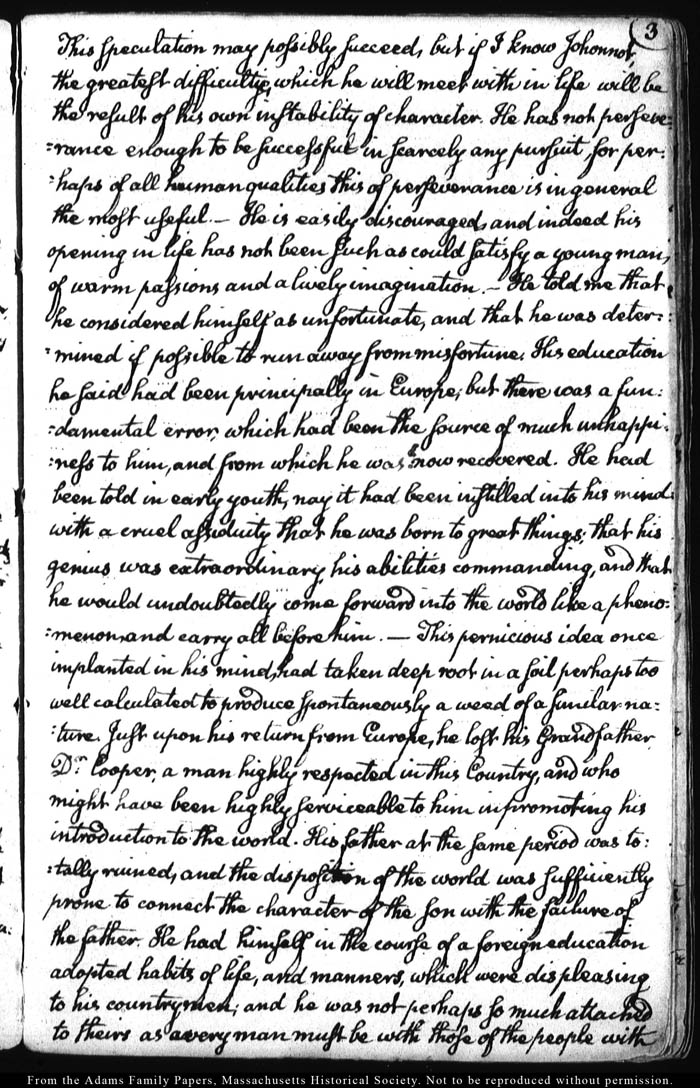 3
This speculation may possibly succeed, but if I know Johonnot,
the greatest difficulties which he will meet with in life will be
the result of his own instability of character. He has not perseve:
:rance enough to be successful in scarcely any pursuit, for per:
:haps of all human qualities this of perseverance is in general
the most useful.— He is easily discouraged, and indeed his
opening in life has not been such as could satisfy a young man,
of warm passions and a lively imagination.— He told me that
he considered himself as unfortunate, and that he was deter:
:mined if possible to run away from misfortune. His education
he said had been principally in Europe; but there was a fun:
:damental error, which had been the source of much unhappi:
:ness to him, and from which he was now recovered. He had
been told in early youth, nay it had been instilled into his mind
with a cruel assiduity that he was born to great things; that his
genius was extraordinary, his abilities commanding, and that
he would undoubtedly come forward into the world like a pheno:
:menon, and carry all before him.— This pernicious idea once
implanted in his mind, had taken deep root in a soil perhaps too
well calculated to produce spontaneously a weed of a similar na:
:ture. Just upon his return from Europe, he lost his Grandfather
Dr. Cooper, a man highly respected in this Country, and who
might have been highly serviceable to him in promoting his
introduction to the world. His father at the same period was to:
:tally ruined, and the disposition of the world was sufficiently
prone to connect the character of the son with the failure of
the father. He had himself in the course of a foreign education
adopted habits of life, and manners, which were displeasing
to his countrymen; and he was not perhaps so much attached
to theirs as every man must be with those of the people with
From the Adams Family Papers, Massachusetts Historical Society. Not to be reproduced without permission.